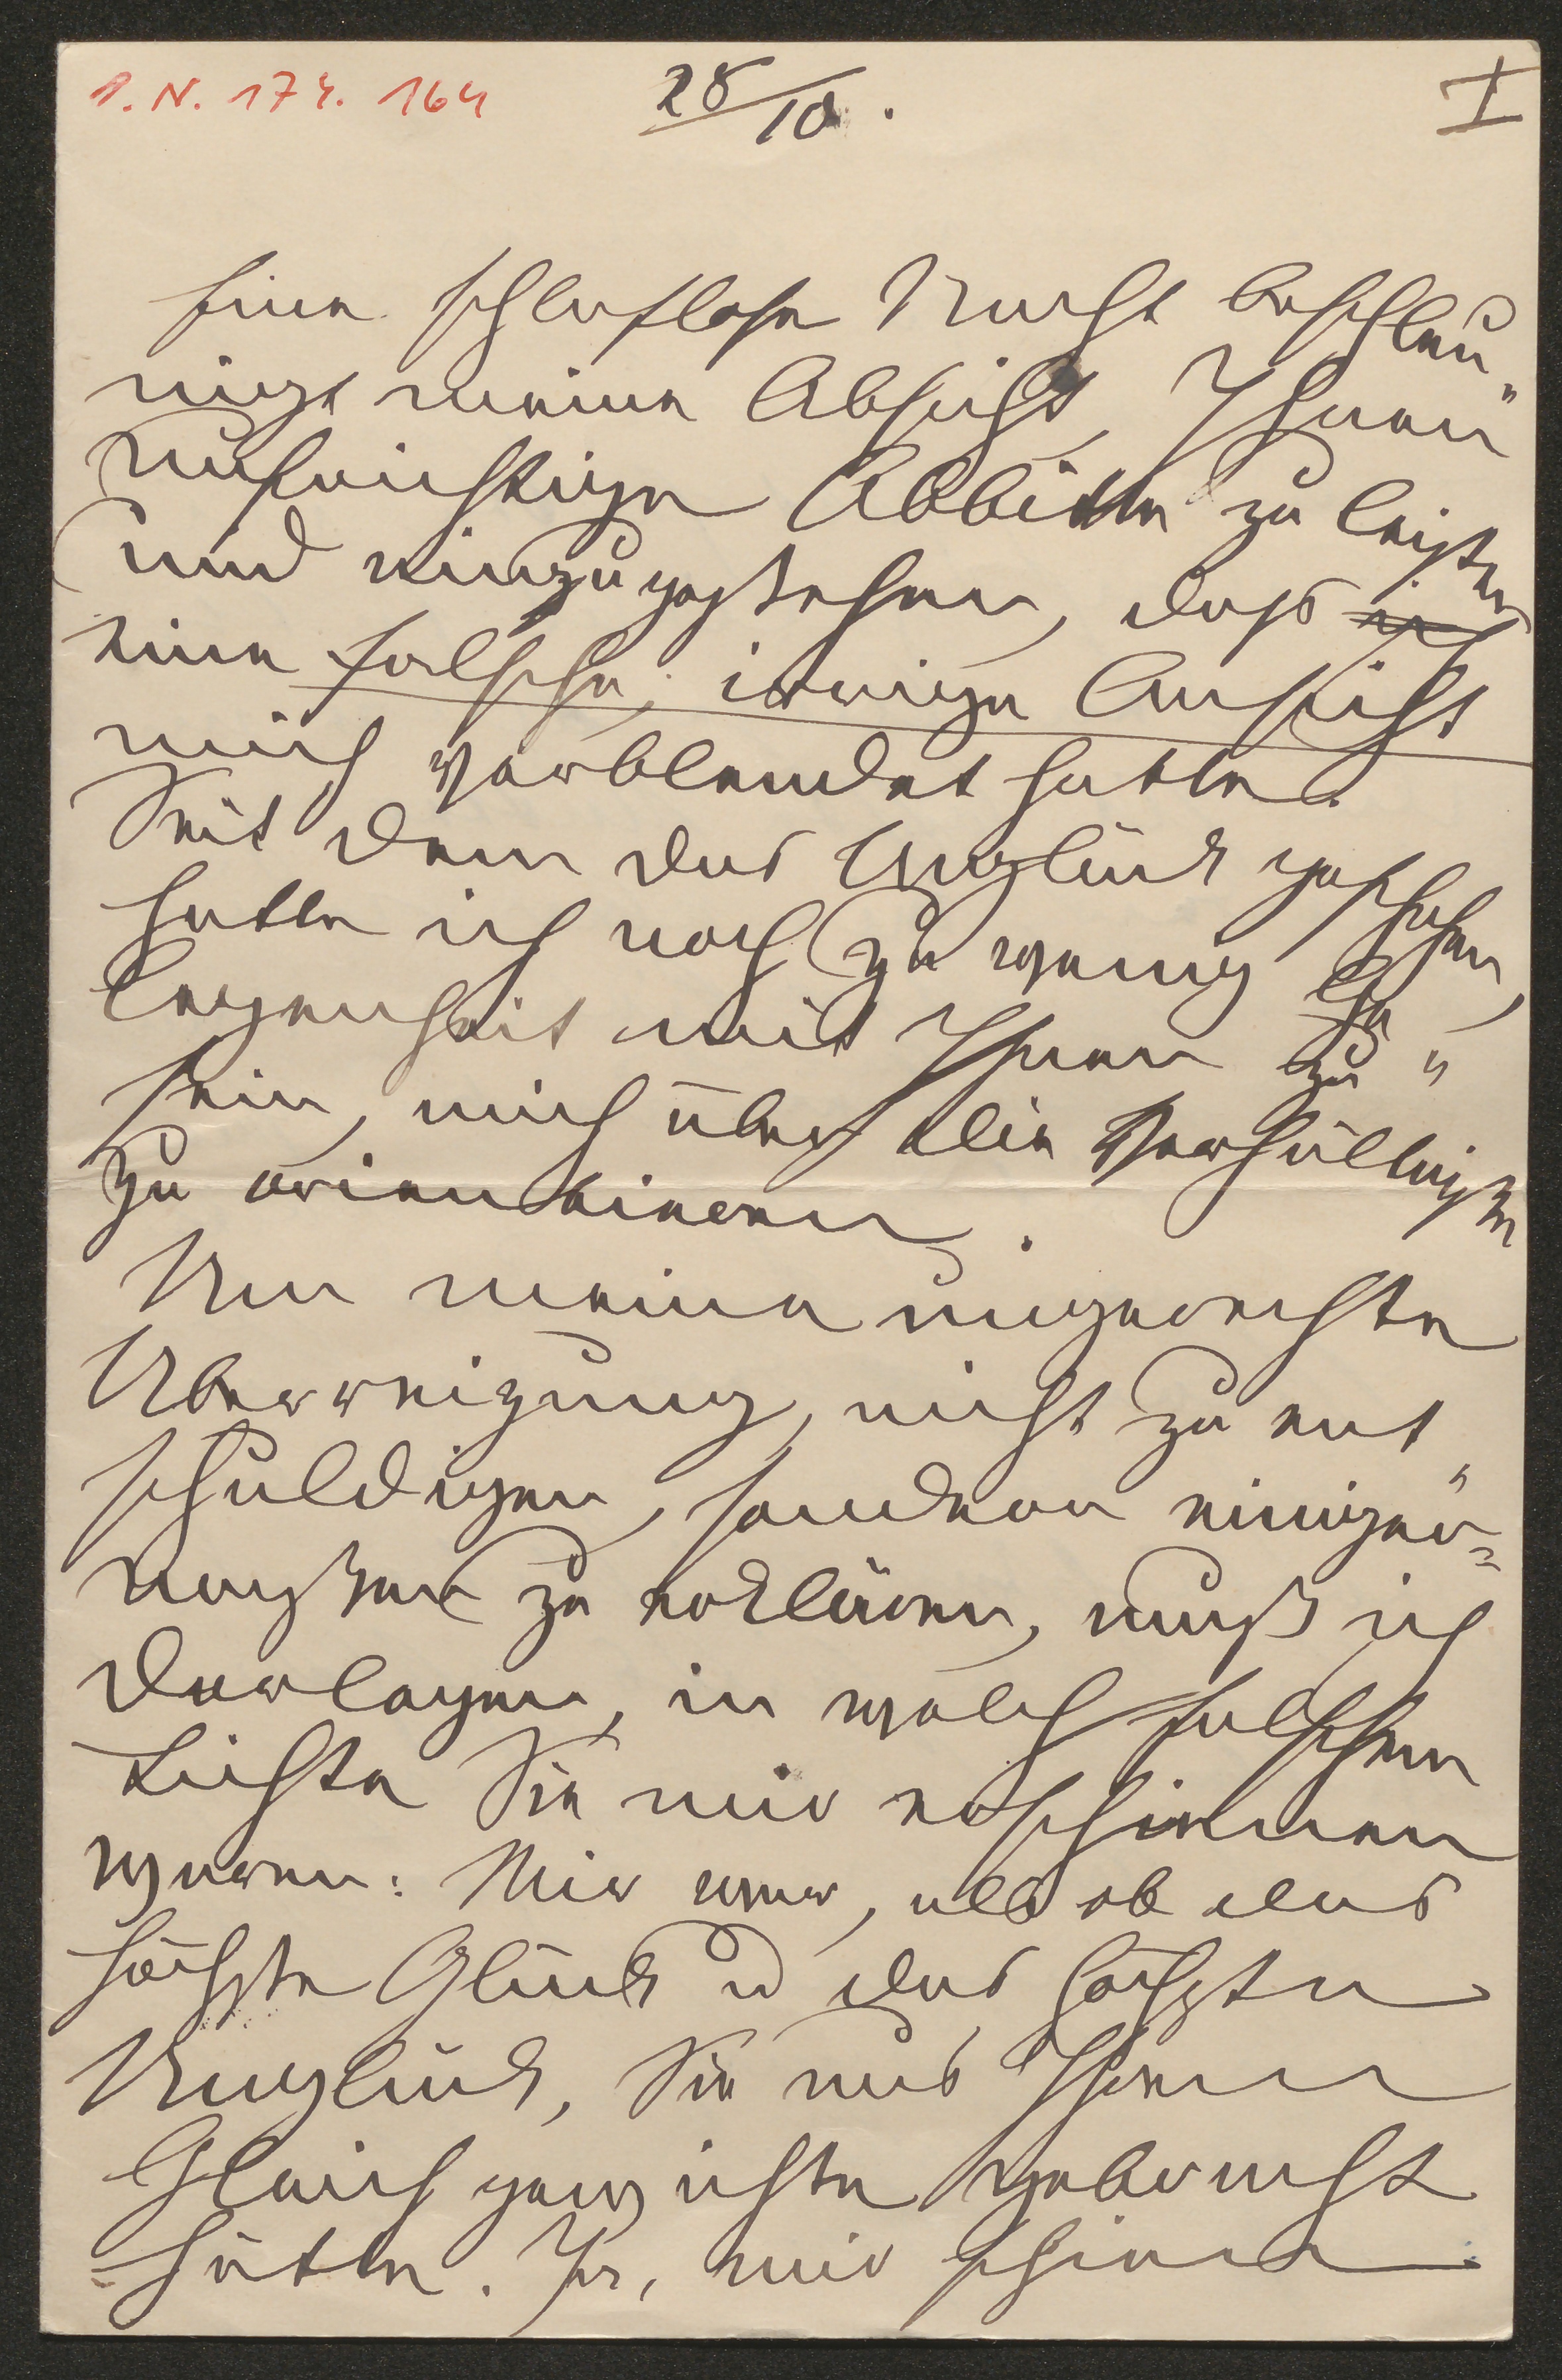 I. N. 174.164
28/10.
I
Eine schlaflose Nacht beschleu-
nigt meine Absicht, Ihnen
aufrichtige Abbitte zu leisten
und einzugestehen, dass ich
eine falsche, irrige Ansicht
mich verblendet hatte.
Seit dem das Unglück geschehen,
hatte ich noch zu wenig Ge-
legenheit mit Ihnen zu
sein, mich über die Verhältnisse
zu orientieren.
Um meine ungerechte
Überzeugung, nicht zu ent-
schuldigen, sondern einiger-
maßen zu erklären, muß ich
darlegen, in welch falschem
Lichte Sie mir erschienen
waren: Mir war, als ob das
höchste Glück u das höchste
Unglück, Sie aus Ihrem
Gleichgewichte gebracht
hätte. Ja, mir schien